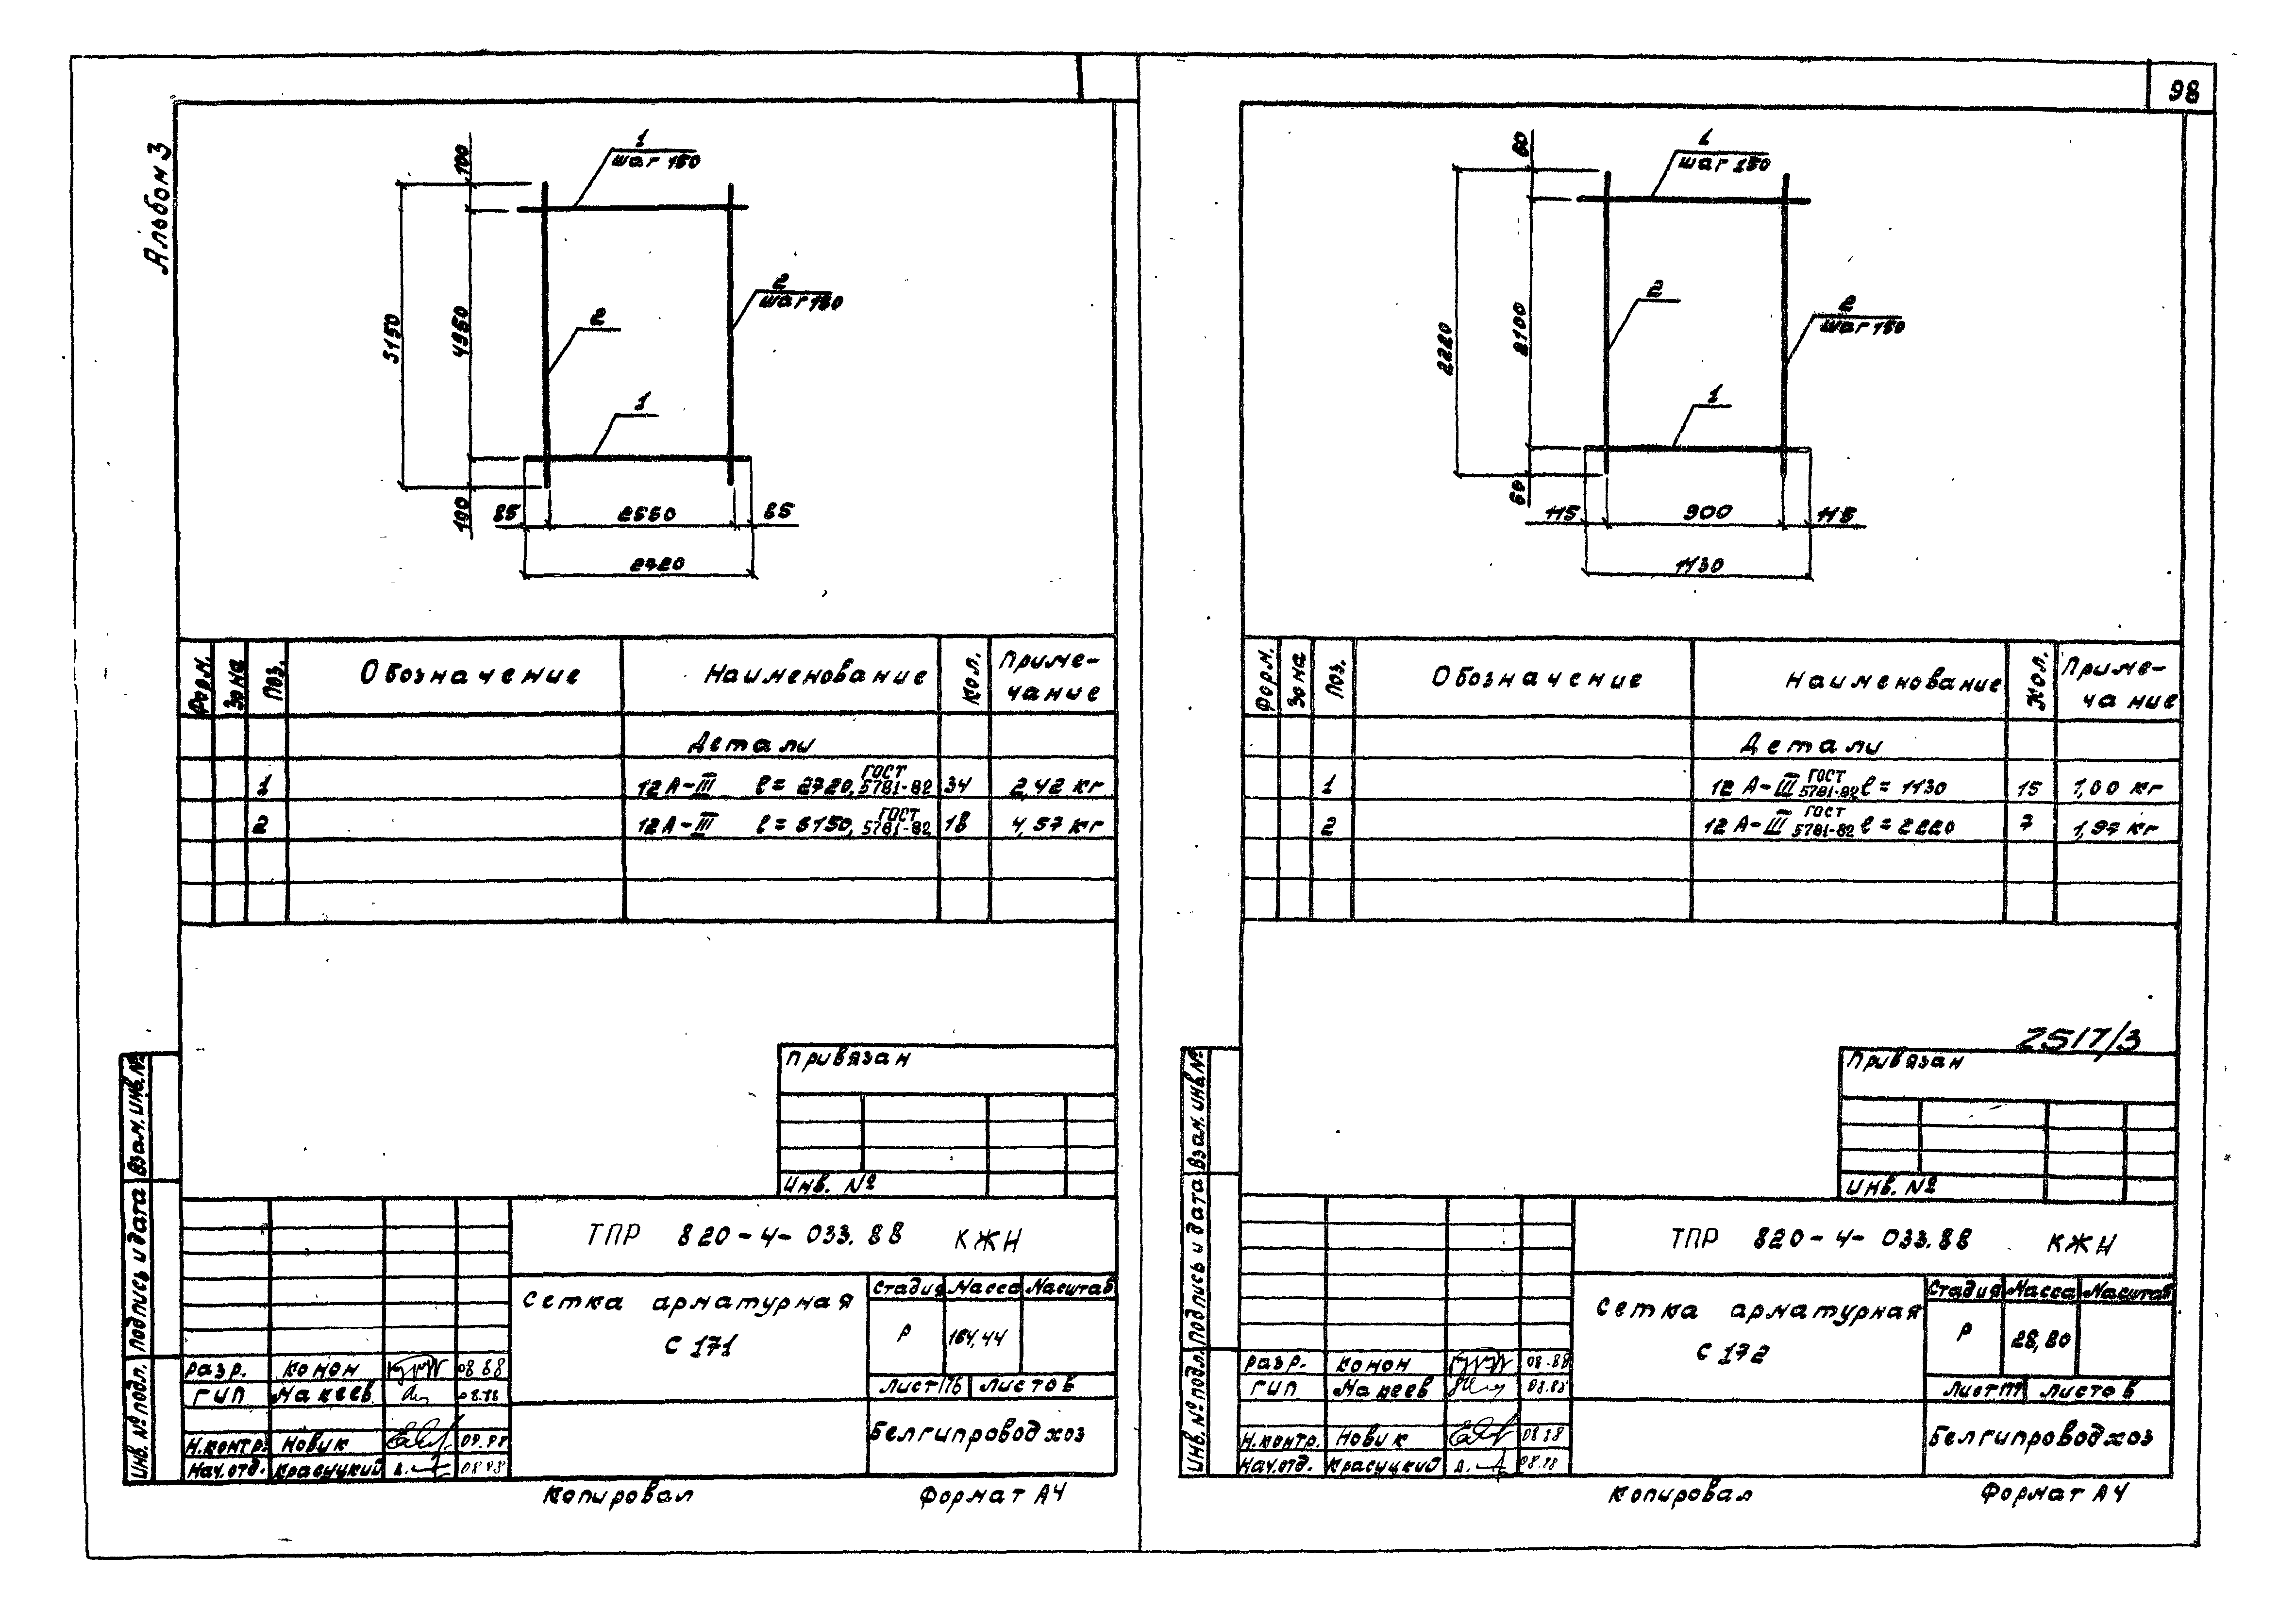 98
Альбом 3
1
шаг 150
100
5150
4950
100
2
2
шаг 150
1
85
2550
85
2720
Форм.
Зона
Поз.
Обозначение
Наименование
Кол.
Приме-
чание
Детали
1 12 А-III l = 2720, ГОСТ 5781-82 34 2,42 кг
2 12 А-III l = 5150, ГОСТ 5781-82 18 4,57 кг
Привязан
Инв. №
Взам. инв. №
Подпись и дата
Инв. № подл.
ТПР 820-4-033.88 КЖН
Сетка арматурная
С 171
Стадия Масса Масштаб
Р 164,44
Лист 176 Листов
Белгипроводхоз
разр. Конон 08.88
ГИП Макеев 08.88
Н.контр. Новик 09.88
Нач.отд. Красуцкий 08.88
Копировал Формат А4
1
шаг 150
60
2220
2100
60
2
2
шаг 150
1
115
900
115
1130
Форм.
Зона
Поз.
Обозначение
Наименование
Кол.
Приме-
чание
Детали
1 12 А-III ГОСТ 5781-82 l = 1130 15 1,00 кг
2 12 А-III ГОСТ 5781-82 l = 2220 7 1,97 кг
2517/3
Привязан
Инв. №
Взам. инв. №
Подпись и дата
Инв. № подл.
ТПР 820-4-033.88 КЖН
Сетка арматурная
С 172
Стадия Масса Масштаб
Р 28,80
Лист 177 Листов
Белгипроводхоз
разр. Конон 08.88
ГИП Макеев 08.88
Н.контр. Новик 08.88
Нач.отд. Красуцкий 08.88
Копировал Формат А4